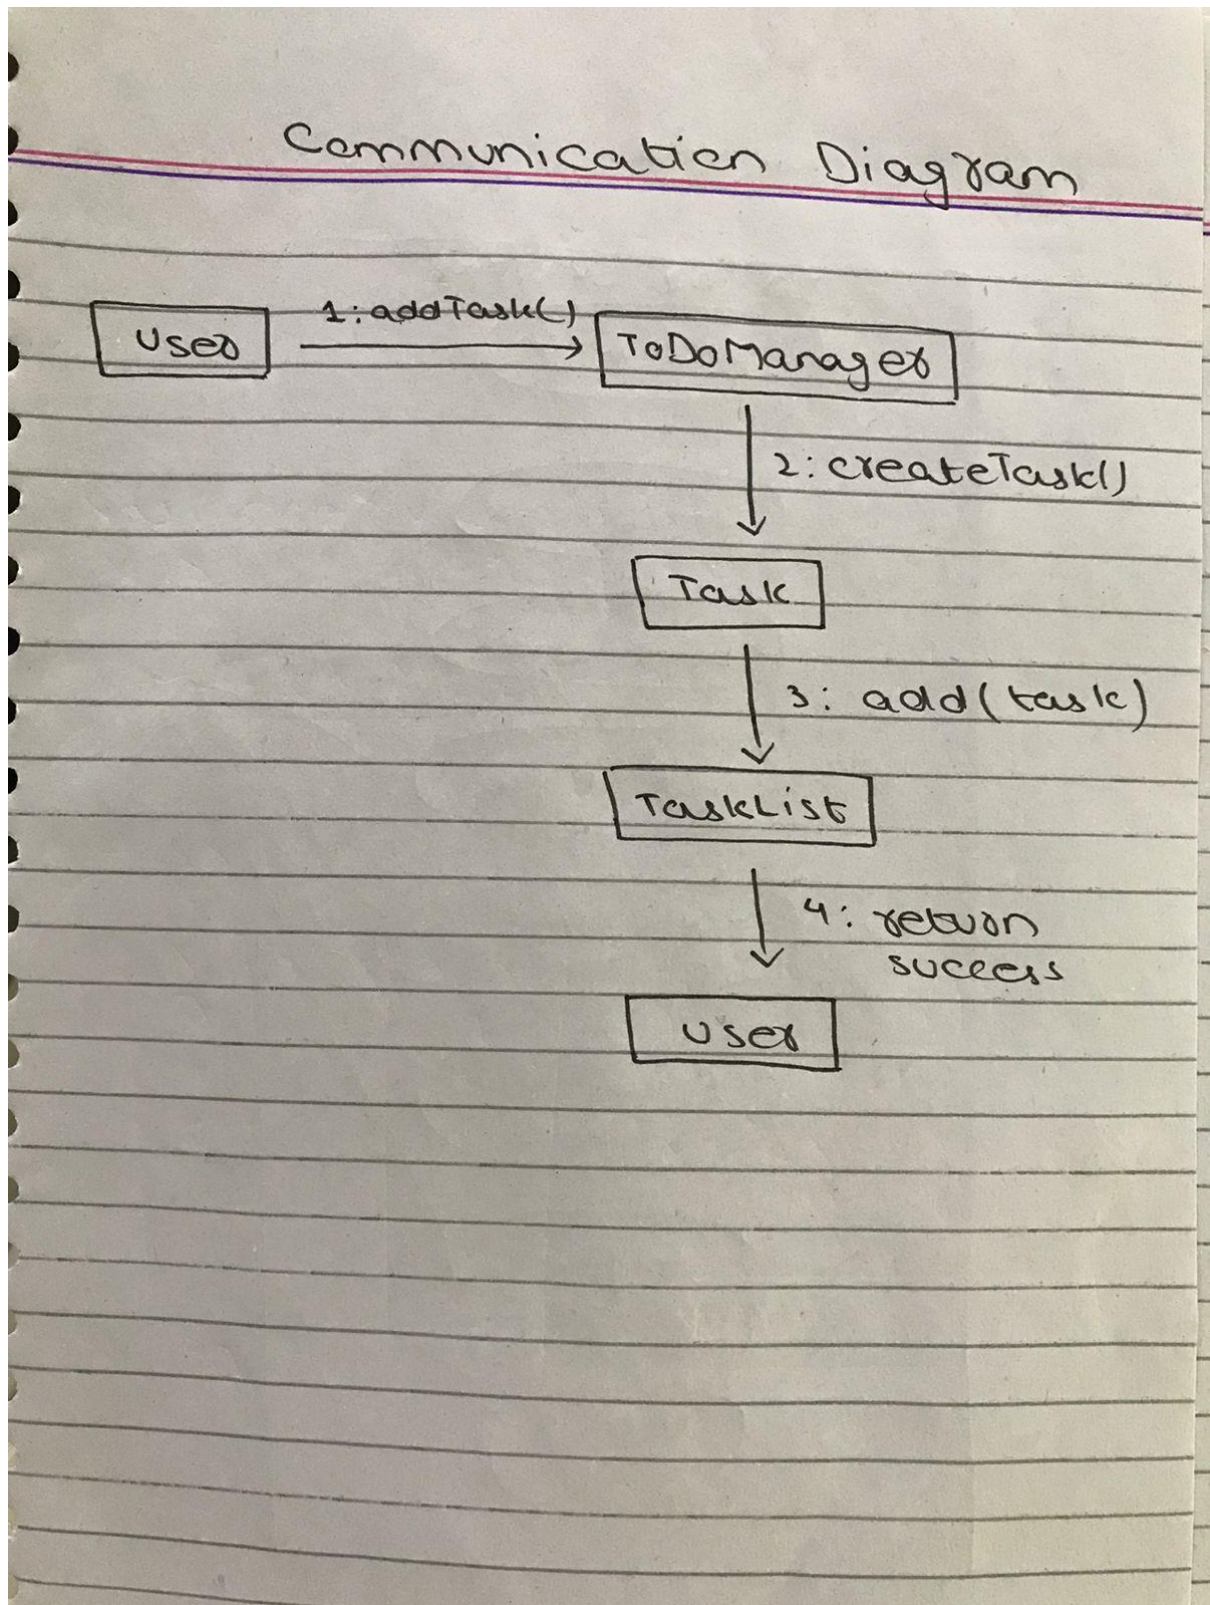 Communication Diagram
User
1: addTask()
ToDoManager
2: createTask()
Task
3: add(task)
TaskList
4: return
success
User